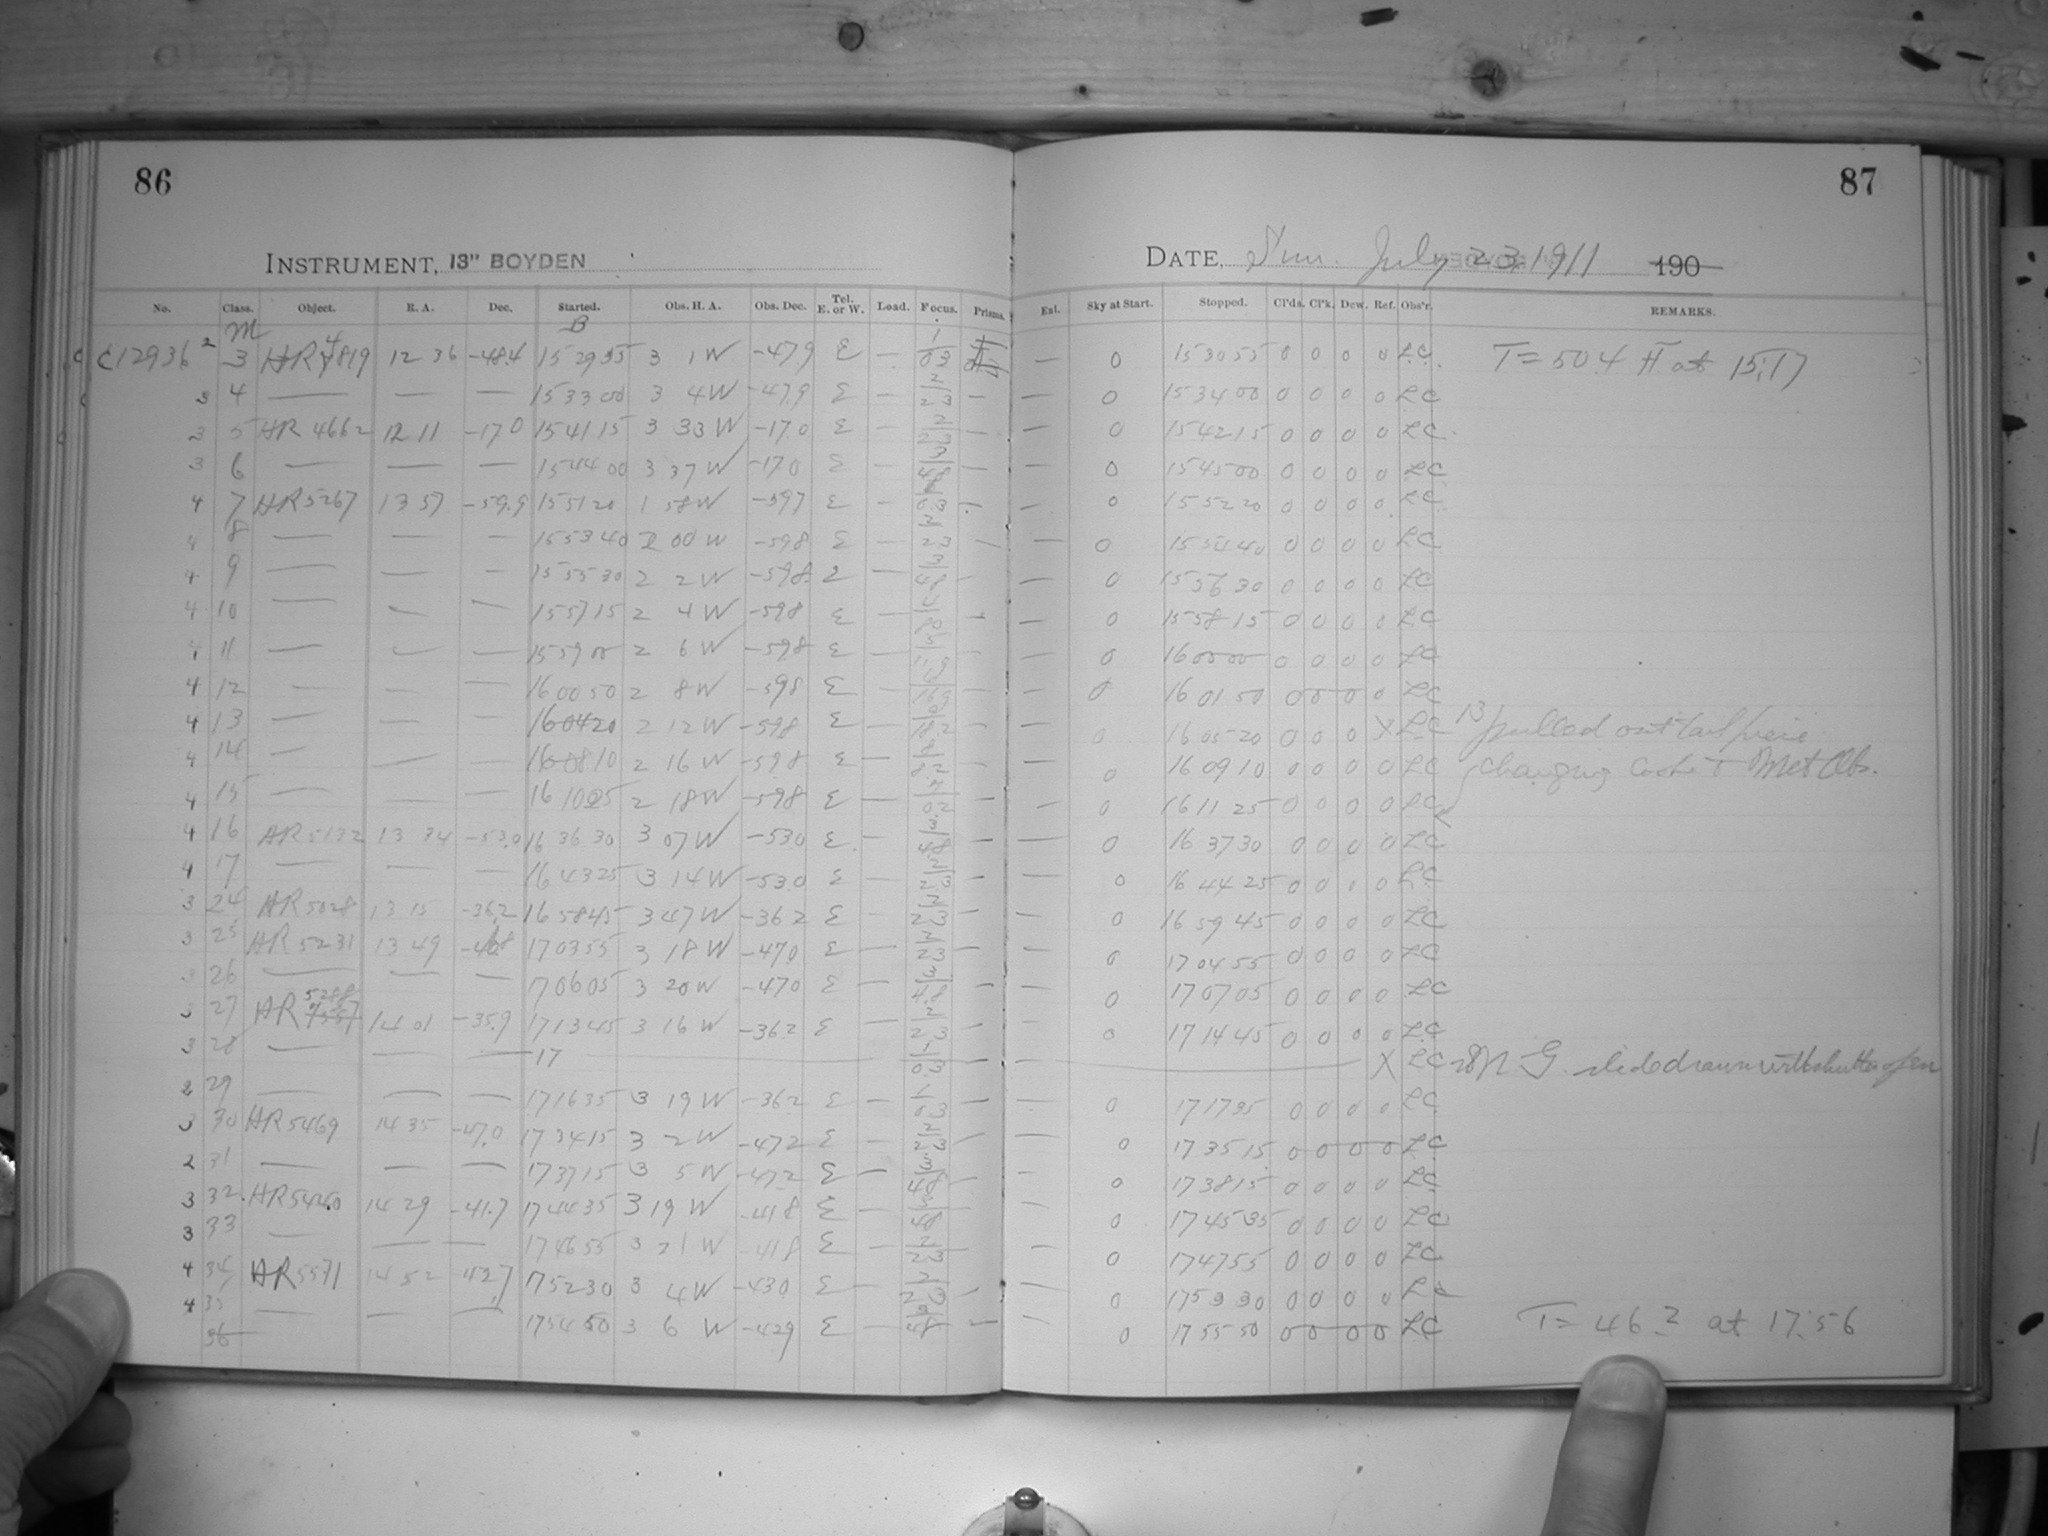 86
INSTRUMENT, 13" BOYDEN
No. Class. Object. R. A. Dec. Started. Obs. H. A. Obs. Dec. Tel. E. or W. Lead. Focus. Prisms.
M B
C12936 2 3 HR 4819 12 36 -48.4 15 29 55 3 1 W -47.9 E —
3 4 — — — 15 33 00 3 4 W -47.9 E — —
3 5 HR 4662 12 11 -17.0 15 41 15 3 33 W -17.0 E — —
3 6 — — — 15 44 00 3 37 W -17.0 E — —
4 7 HR 5267 13 57 -59.9 15 51 20 1 58 W -59.7 E —
4 8 — — — 15 53 40 2 00 W -59.8 E — —
4 9 — — — 15 55 30 2 2 W -59.8 E — —
4 10 — — — 15 57 15 2 4 W -59.8 E
4 11 — — — 15 59 00 2 6 W -59.8 E — —
4 12 — — — 16 00 50 2 8 W -59.8 E — —
4 13 — — — 16 04 20 2 12 W -59.8 E — —
4 14 — — — 16 08 10 2 16 W -59.8 E — —
4 15 — — — 16 10 25 2 18 W -59.8 E — —
4 16 HR 5132 13 34 -53.0 16 36 30 3 07 W -53.0 E — —
4 17 — — — 16 43 25 3 14 W -53.0 E — —
3 24 HR 5028 13 15 -36.2 16 58 45 3 47 W -36.2 E — —
3 25 HR 5231 13 49 17 03 55 3 18 W -47.0 E — —
3 26 — — — 17 06 05 3 20 W -47.0 E — —
3 27 HR 5288 14 01 -35.9 17 13 45 3 16 W -36.2 E — —
3 28 — — — 17
2 29 — — — 17 16 35 3 19 W -36.2 E — —
3 30 HR 5469 14 35 -47.0 17 34 15 3 2 W -47.2 E — —
2 31 — — — 17 37 15 3 5 W -47.2 E — —
3 32 HR 5440 14 29 -41.7 17 44 35 3 19 W -41.8 E — —
3 33 — — — 17 46 55 3 21 W -41.8 E — —
4 34 HR 5571 14 52 -42.7 17 52 30 3 4 W -43.0 E — —
4 35 — — — 17 54 50 3 6 W -42.9 E — —
36
87
DATE, Sun. July 23, 1911 190
Enl. Sky at Start. Stopped. Cl'ds. Cl'k. Dew. Ref. Obs'r. REMARKS.
— 0 15 30 55 0 0 0 0 LC. T = 50.4 H at 15:17
— 0 15 34 00 0 0 0 0 LC
— 0 15 42 15 0 0 0 0 LC
— 0 15 45 00 0 0 0 0 LC
— 0 15 52 20 0 0 0 0 LC
— 0 15 54 40 0 0 0 0 LC
— 0 15 56 30 0 0 0 0 LC
— 0 15 58 15 0 0 0 0 LC
— 0 16 00 00 0 0 0 0 LC
— 0 16 01 50 0 0 0 0 LC
— 0 16 05 20 0 0 0 X LC 13 pulled out tail piece
— 0 16 09 10 0 0 0 0 LC changing Met Obs.
— 0 16 11 25 0 0 0 0 LC
— 0 16 37 30 0 0 0 0 LC
— 0 16 44 25 0 0 0 0 LC
— 0 16 59 45 0 0 0 0 LC
— 0 17 04 55 0 0 0 0 LC
— 0 17 07 05 0 0 0 0 LC
— 0 17 14 45 0 0 0 0 LC
X LC 28 N. G. slide drawn with shutter open
— 0 17 17 35 0 0 0 0 LC
— 0 17 35 15 0 0 0 0 LC
— 0 17 38 15 0 0 0 0 LC
— 0 17 45 35 0 0 0 0 LC
— 0 17 47 55 0 0 0 0 LC
— 0 17 53 30 0 0 0 0 LC
— 0 17 55 50 0 0 0 0 LC T = 46.2 at 17:56